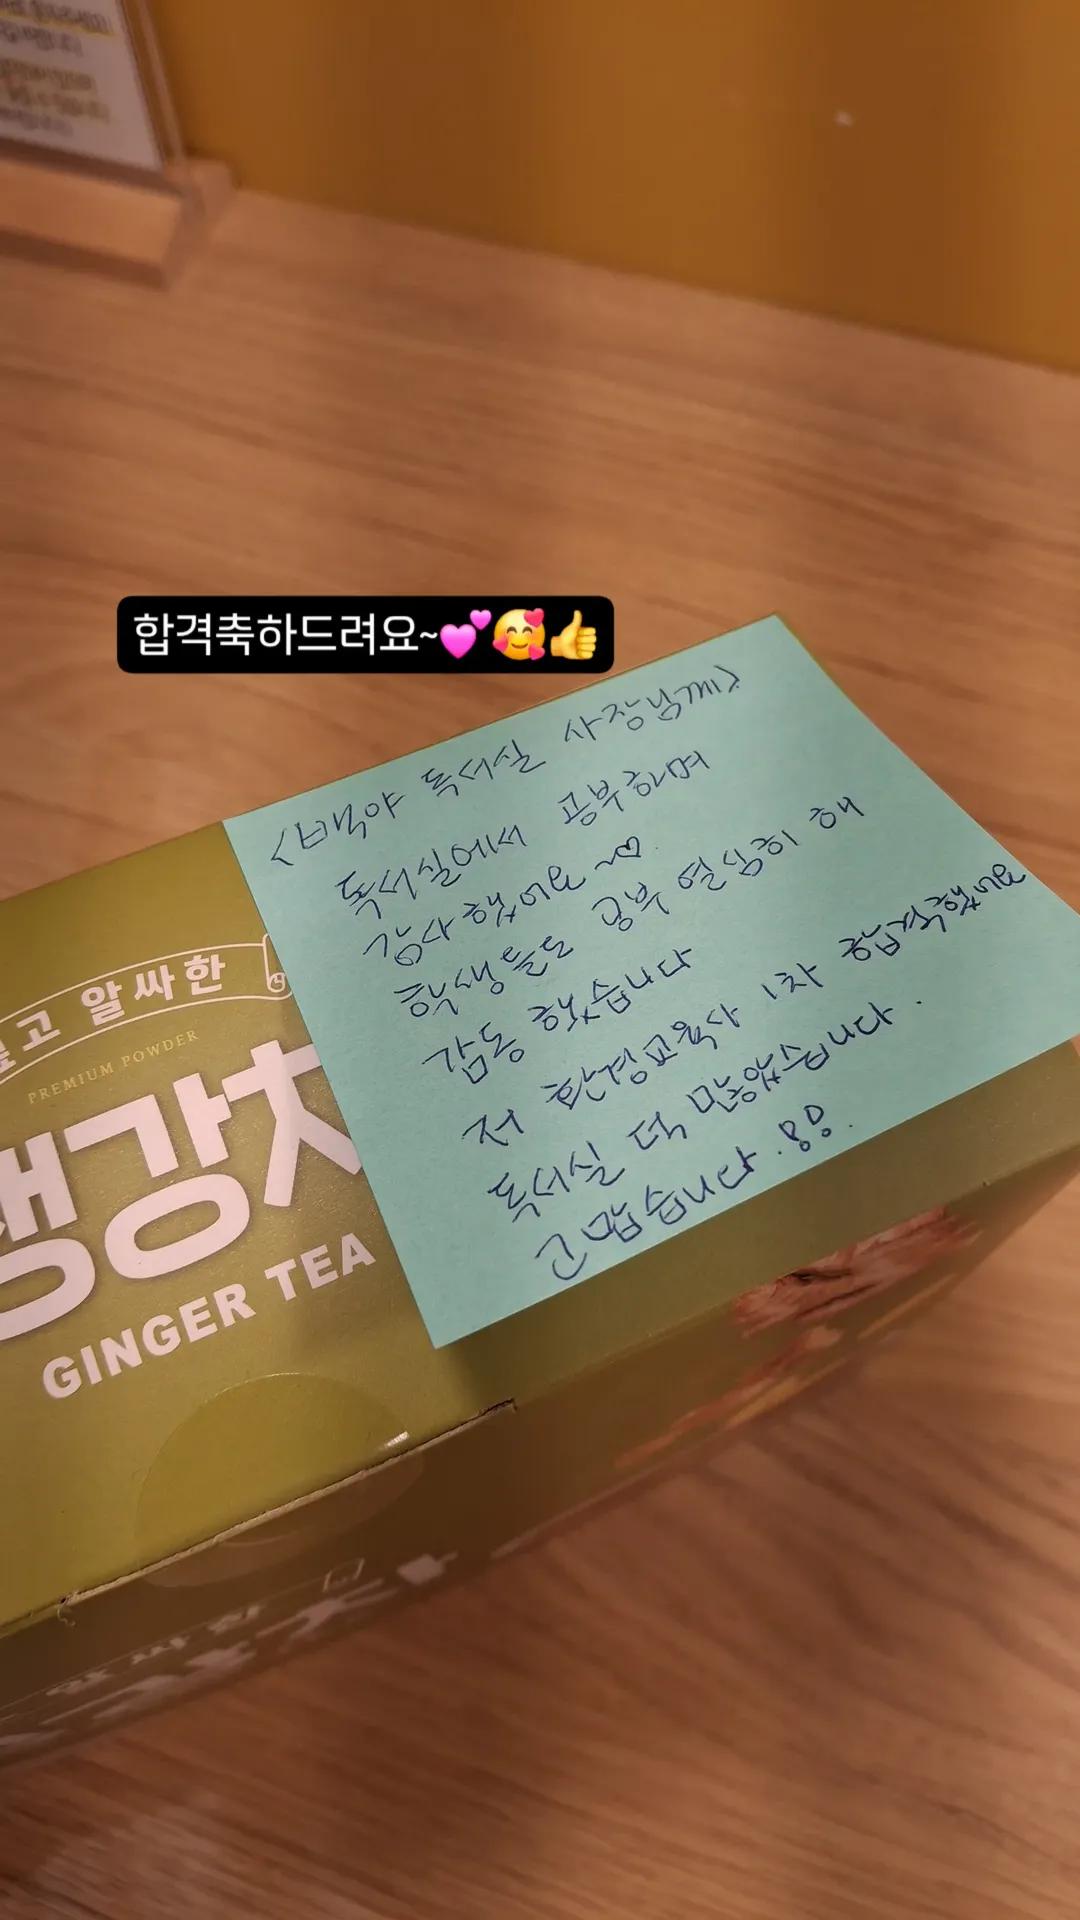 합격축하드려요~💕🥰👍
<백야 독서실 사장님께>
독서실에서 공부하며
감사했어요~♡
학생들도 공부 열심히 해
감동했습니다
저 환경교육사 1차 합격했어요
독서실 덕 많았습니다.
고맙습니다.
알싸한
PREMIUM POWDER
생강차
GINGER TEA